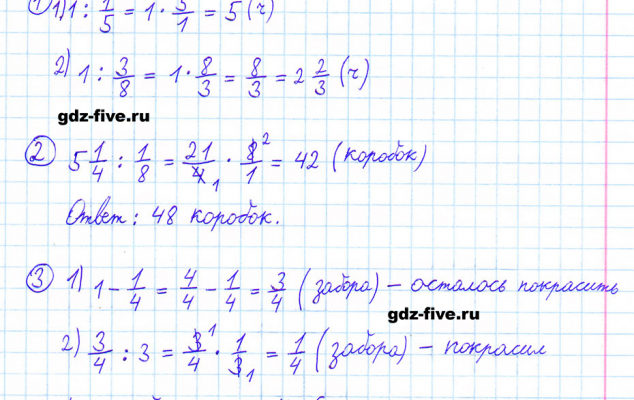 ① 1) 1 : 1/5 = 1 · 5/1 = 5 (ч)
2) 1 : 3/8 = 1 · 8/3 = 8/3 = 2 2/3 (ч)
gdz-five.ru
② 5 1/4 : 1/8 = 21/4 1 · 8 2/1 = 42 (коробок)
Ответ: 48 коробок.
③ 1) 1 - 1/4 = 4/4 - 1/4 = 3/4 (забора) – осталось покрасить
gdz-five.ru
2) 3/4 : 3 = 3 1/4 · 1/3 1 = 1/4 (забора) – покрасил